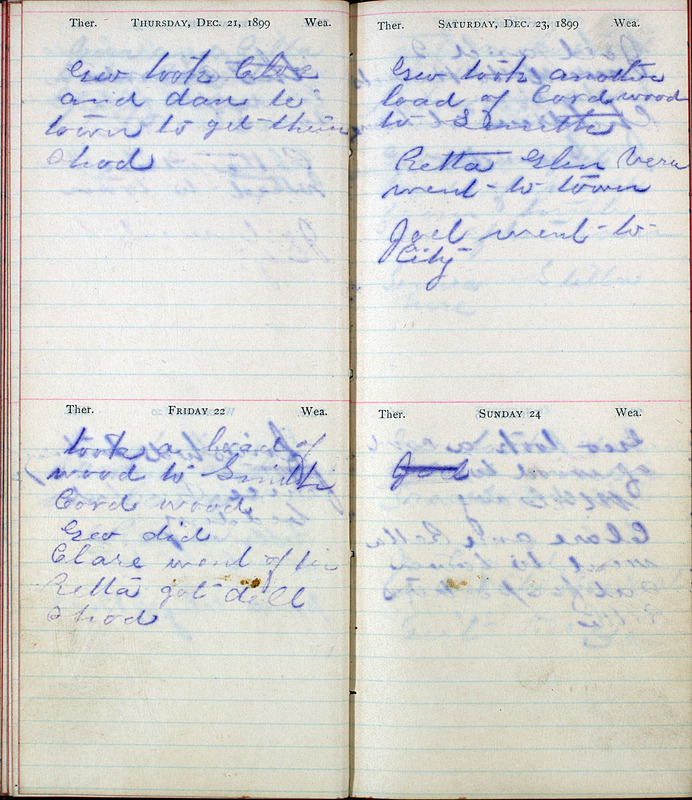 Ther. THURSDAY, DEC. 21, 1899 Wea.
Geo took Clare
and dan to
town to get their
Shod
Ther. FRIDAY 22 Wea.
took a load of
wood to Smiths
Cord wood
Geo did
Clare went
Retta got doll
Shod
Ther. SATURDAY, DEC. 23, 1899 Wea.
Geo took another
load of Cord wood
to Smiths
Retta Glen Vera
went to town
Joel went to
City
Ther. SUNDAY 24 Wea.